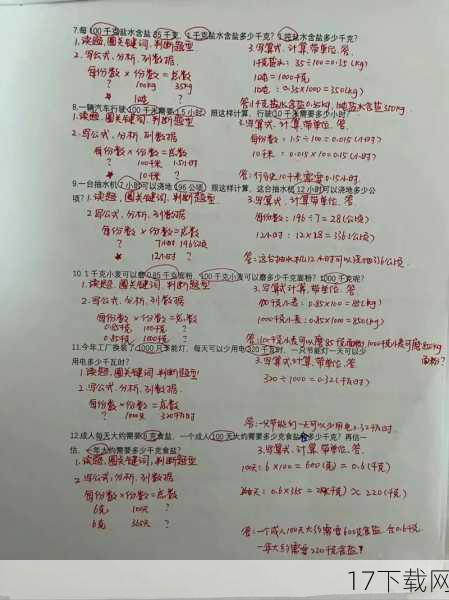 7.每100千克盐水含盐35千克，1千克盐水含盐多少千克？1吨盐水含盐多少千克？
1.读题，圈关键词，判断题型
3.写算式，计算，带单位，答
2.写公式，分析，列数据
1千克盐水：35÷100=0.35(kg)
每份数×份数=总数
1吨=1000千克
? 100kg 35kg
1吨：0.35×1000=350(kg)
* 1吨 ?
答：1千克盐水含盐0.35kg，1吨盐水含盐350kg
8.一辆汽车行驶100千米需要1.5小时，照这样计算，行驶10千米需要多少小时？
1.读题，圈关键词，判断题型
3.写算式，计算，带单位，答
2.写公式，分析，列数据
每份数：1.5÷100=0.015(小时)
每份数×份数=总数
10千米：0.015×10=0.15(小时)
? 100千米 1.5小时
* 10千米 ?
答：行驶10千米需要0.15小时.
9.一台抽水机7小时可以浇地196公顷，照这样计算，这台抽水机12小时可以浇地多少公
顷？
1.读题，圈关键词，判断题型
3.写算式，计算，带单位，答
2.写公式，分析，列数据
每份数：196÷7=28(公顷)
每份数×份数=总数
12小时：12×28=336(公顷)
? 7小时 196公顷
* 12小时 ?
答：这台抽水机12小时可以浇地336公顷
10.1千克小麦可以磨0.85千克面粉，100千克小麦可以磨多少千克面粉？1000千克呢？
1.读题，圈关键词，判断题型
3.写算式，计算，带单位，答
2.写公式，分析，列数据
100千克小麦：0.85×100=85(kg)
每份数×份数=总数
1000千克小麦：0.85×1000=850(kg)
0.85千克 100千克 ?
0.85千克 1000千克 ?
答：100千克小麦可以磨85千克面粉，1000千克小麦可磨850kg
面粉?
11.今年工厂换装了1000只节能灯，每天可以少用电320千瓦时，一只节能灯一天可以少
用电多少千瓦时？
3.写算式，计算，带单位，答
1.读题，圈关键词，判断题型
320÷1000=0.32(千瓦时)
2.写公式，分析，列数据
每份数×份数=总数
? 1000只 320千瓦时
答：一只节能灯一天可以少用电0.32千瓦时
12.成人每天大约需要6克食盐，一个成人100天大约需要多少克食盐？多少千克？再估一
估，一年大约需要多少千克食盐？
3.写算式，计算，带单位，答
1.读题，圈关键词，判断题型
100天：6×100=600(克)=0.6(千克)
2.写公式，分析，列数据
每份数×份数=总数
6克 100天 ?
6克 365天 ?
答：一个成人100天大约需要600克食盐，合0.6千克.
一年大约需要220千克食盐?
17下载网